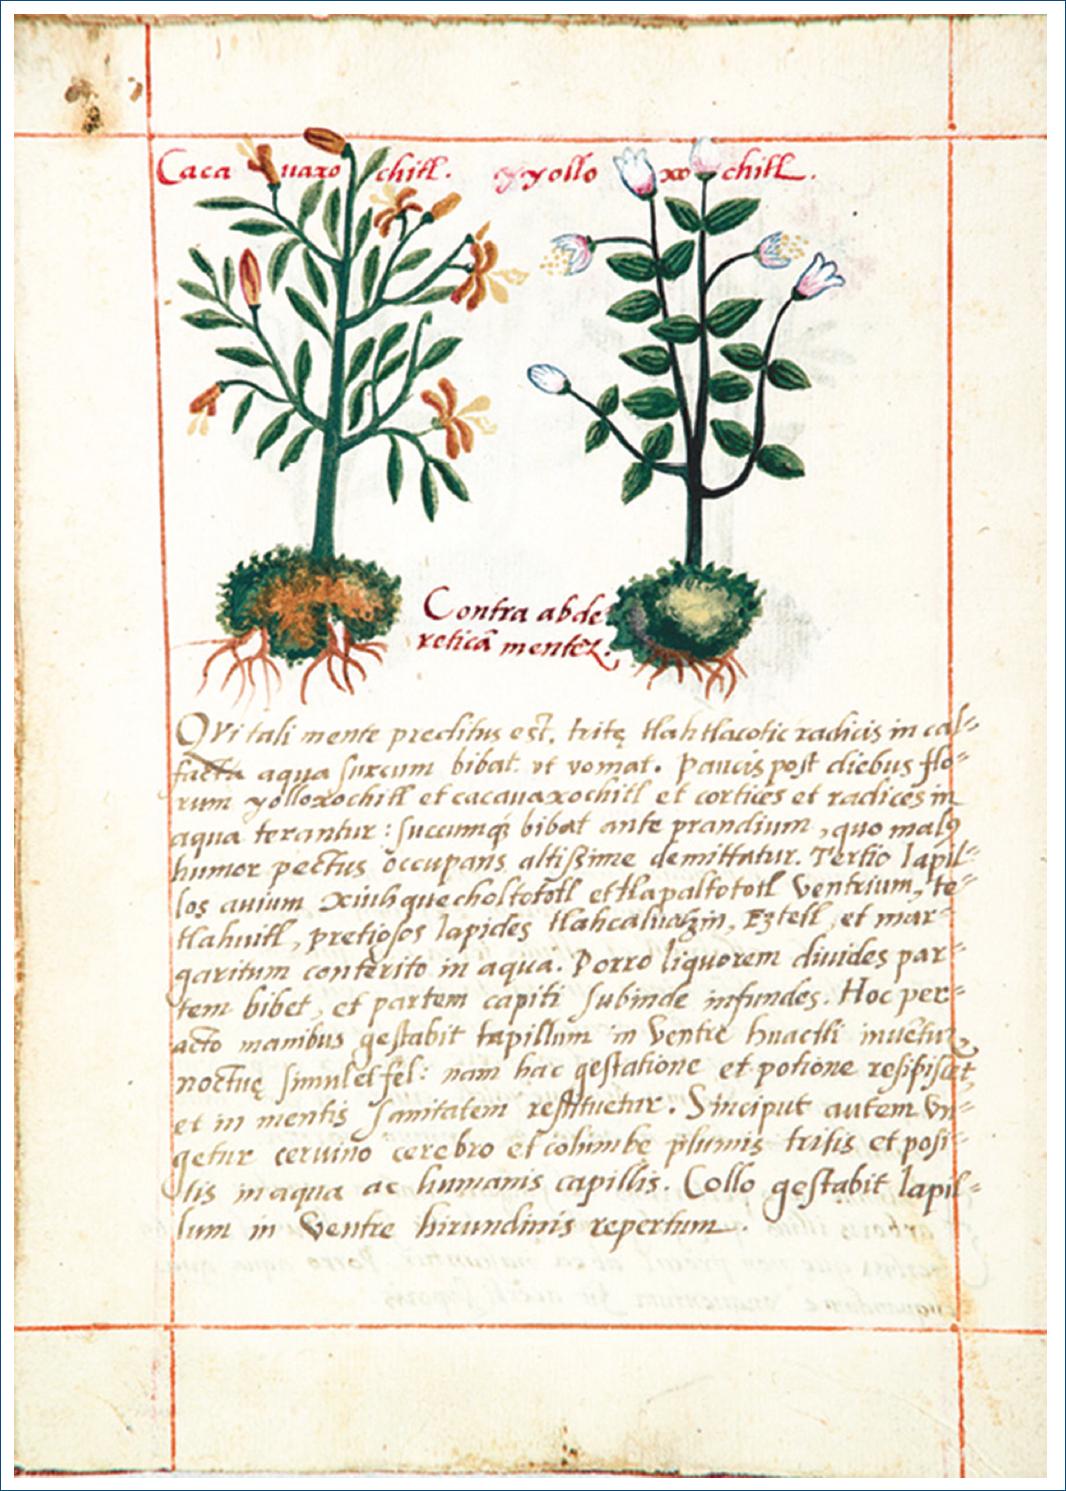 Cacauaxochitl. yyolloxochitl.
Contra abde
reticā mentez.
QVi tali mente preditus est, tritę tlahtlacotic radicis in cal⸗
facta aqua surcum bibat vt vomat. Paucis post diebus flo⸗
rum yolloxochitl et cacauaxochitl et cortices et radices in
aqua terantur: succumq; bibat ante prandium, quo malꝰ
humor pectus occupans altissime demittatur. Tertio lapil⸗
los auium xiuhquecholtototl et tlapaltototl ventrium, te⸗
tlahuitl, pretiosos lapides tlahcalhuatzin, Eztetl, et mar⸗
garitum conterito in aqua. Porro liquorem diuides par⸗
tem bibet, et partem capiti subinde infundes. Hoc per⸗
acto manibus gestabit lapillum in ventre huactli
noctuę simulet fel: nam hac gestatione et potione resipiscet,
et in mentis sanitatem restituetur. Sinciput autem vn⸗
getur ceruino cerebro et columbe plumis tritis et posi⸗
tis in aqua ac humanis capillis. Collo gestabit lapil⸗
lum in ventre hirundinis repertum.